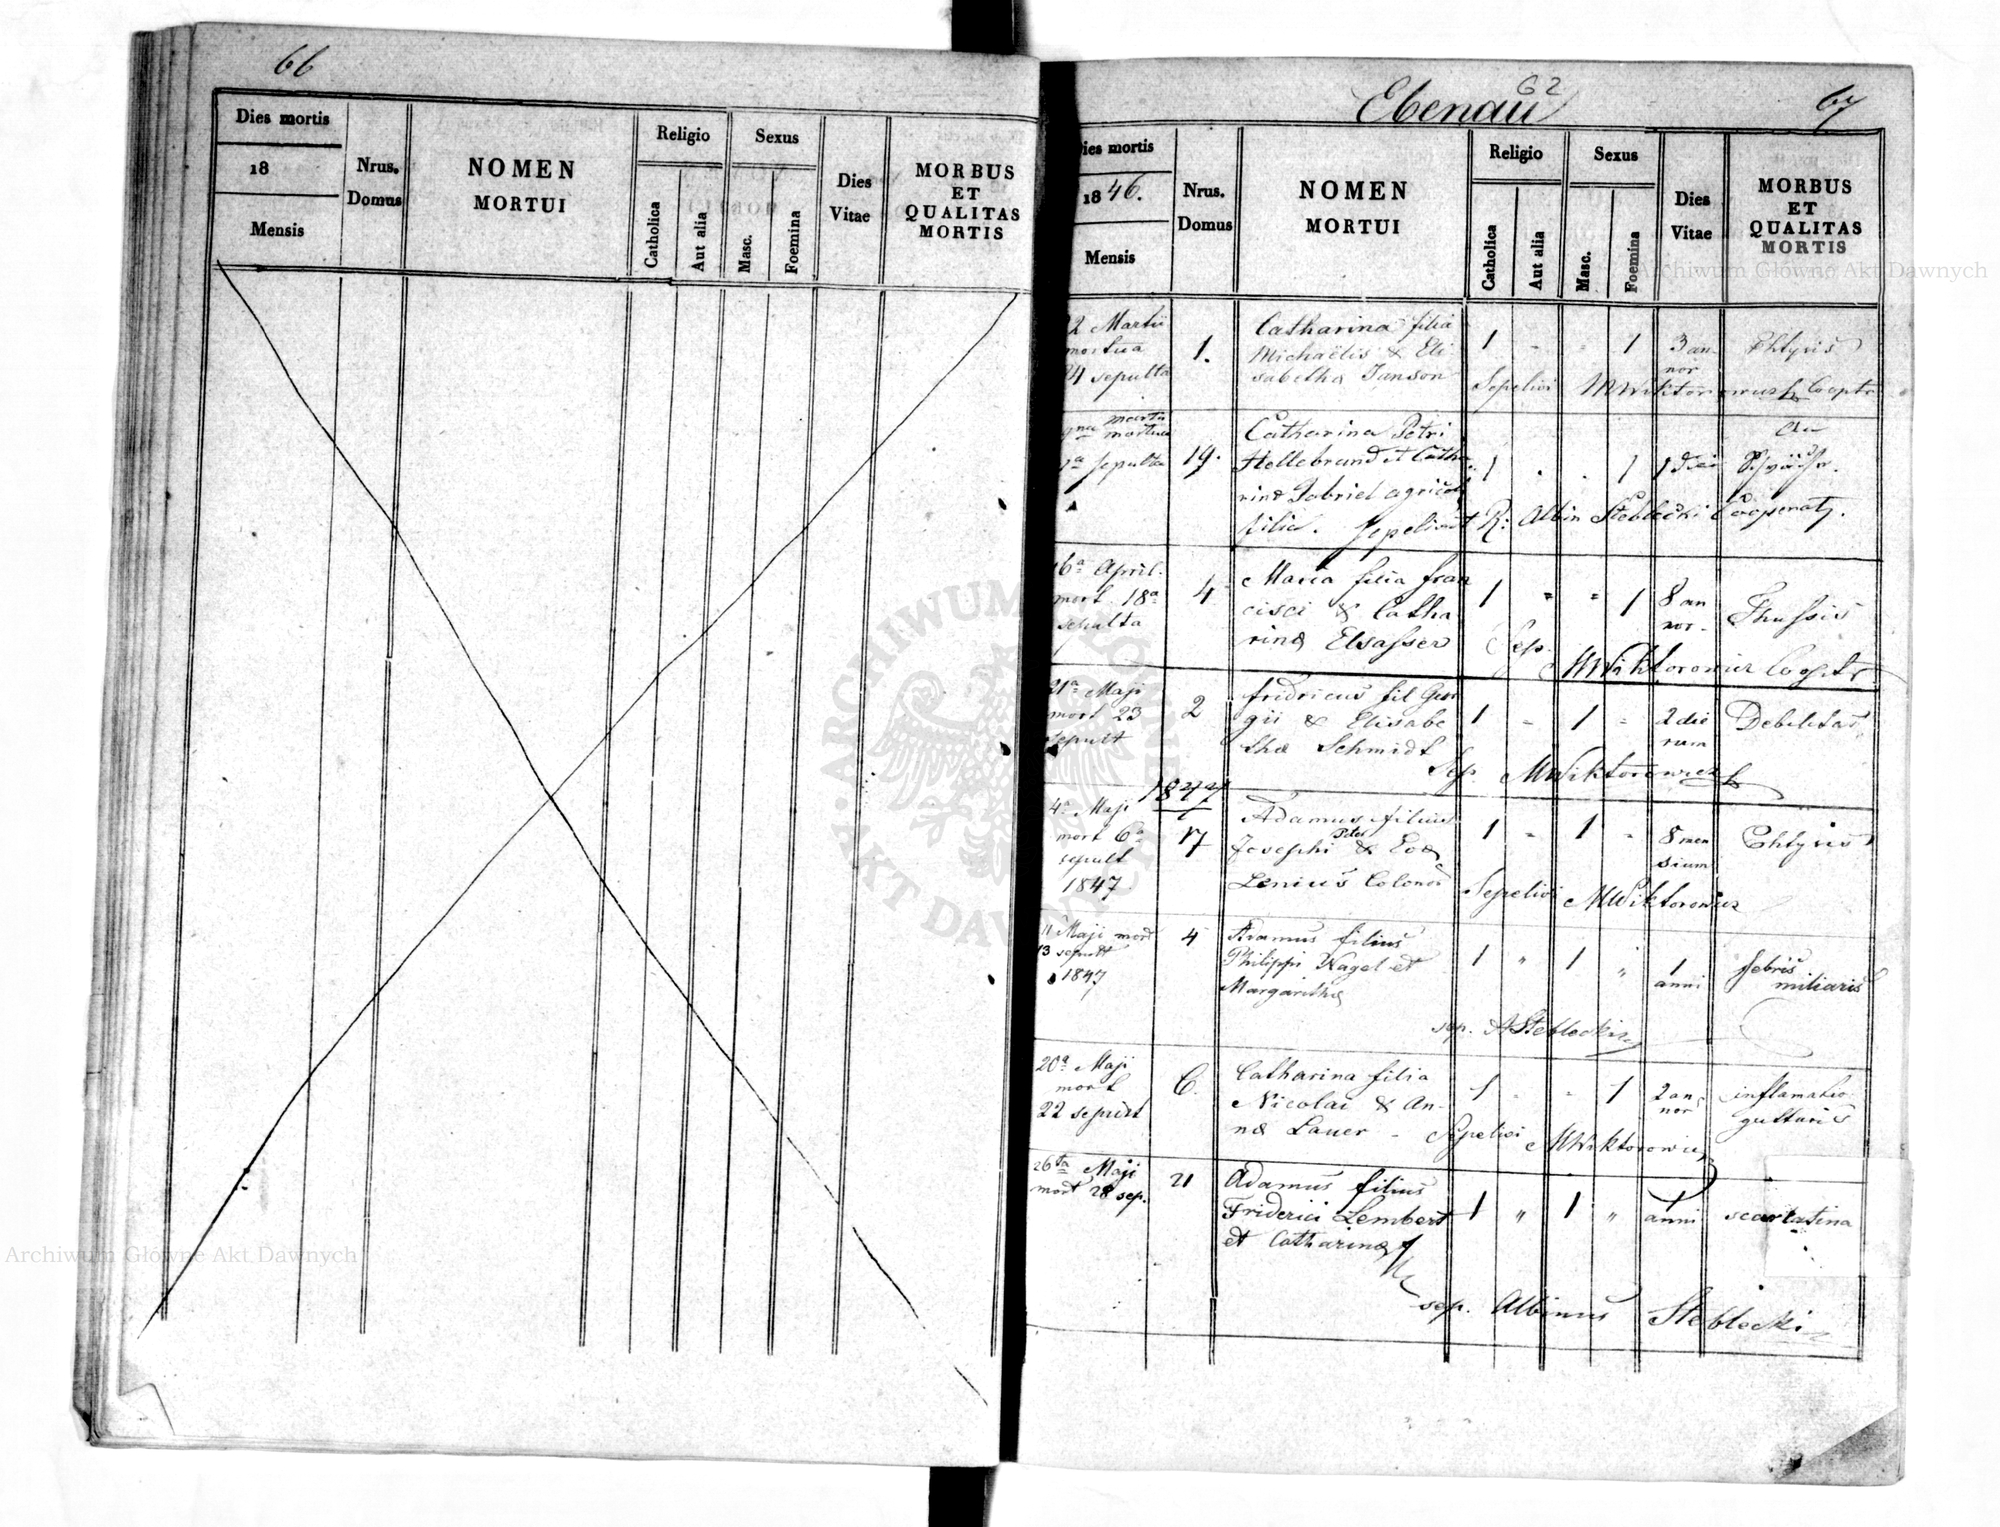 66
Dies mortis
18
Mensis
Nrus.
Domus
NOMEN
MORTUI
Religio
Catholica
Aut alia
Sexus
Masc.
Foemina
Dies
Vitae
MORBUS
ET
QUALITAS
MORTIS
Ebenau
62
67
Dies mortis
1846.
Mensis
Nrus.
Domus
NOMEN
MORTUI
Religio
Catholica
Aut alia
Sexus
Masc.
Foemina
Dies
Vitae
MORBUS
ET
QUALITAS
MORTIS
22 Martii
mortua
24 sepulta
1.
Catharina filia
Michaëlis & Eli
sabethæ Janson
1 - - 1
3 an
nor
Phtysis
Sepelivi MWiktorowicz Cooptr
Martii
mortua
sepulta
19.
Catharina Petri
Hellebrand et Catha
rinæ Gabriel agricol
filia. Sepelivit R: Albin Steblecki Cooperatr.
1 . . 1
1 diei
16ª April.
mort 18ª
sepulta
4
Maria filia Fran
cisci & Catha
rinæ Elsasser
1 " " 1
8 an
nor.
Thussis
Sep. MWiktorowicz Cooptr
21ª Maji
mort 23
sepult
2
Fridricus fil Geor
gii & Elisabe
thæ Schmidt
1 - 1 -
2 die
rum
Debilitas
Sep. MWiktorowicz
1847
4ª Maji
mort 6ª
sepult
1847.
17
Adamus filius
Josephi & Evæ
Lenius Colonor
1 - 1 -
8 men
sium
Phtysis
Sepelivi MWiktorowicz
11 Maji mort
13 sepult
1847
4
Adamus filius
Philippi Nagel et
Margarithæ
1 " 1 "
1
anni
febris
miliaris
sep. ASteblecki
20ª Maji
mort
22 sepult
6.
Catharina filia
Nicolai & An-
næ Lauer -
1 - - 1
2 an
nor
inflamatio
gutturis
Sepelivi MWiktorowicz
26ta Maji
mort 28 sep.
21
Adamus filius
Friderici Lembert
et Catharinæ
1 " 1 "
1
anni
scarlatina
sep. Albinus Steblecki
ARCHIWUM GŁÓWNE AKT DAWNYCH
Archiwum Główne Akt Dawnych
Archiwum Główne Akt Dawnych